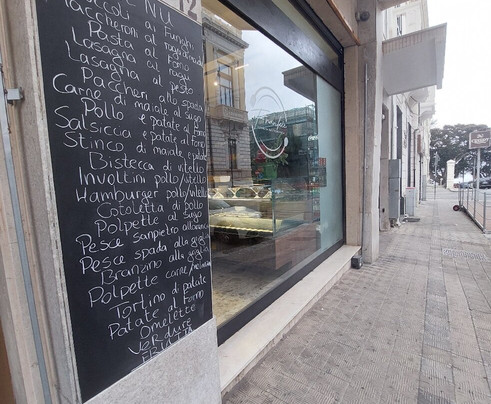 MENU
12
Gnocchi ai Funghi
Maccheroni al ragù
Pasta al Forno
Lasagna al ragù
Lasagna al pesto
Paccheri allo spada
Carne di maiale al sugo
Pollo e patate al Forno
Salsiccia e patate al Forno
Stinco di maiale e patate
Bistecca di vitello
Involtini pollo/vitello
Hamburger pollo/vitello
Cotoletta di pollo
Polpette al sugo
Pesce sanpietro
Pesce spada alla griglia
Branzino alla griglia
Polpette carne/melanzane
Tortino di patate
Patate al Forno
Omelette
Verdure
FRUTTA